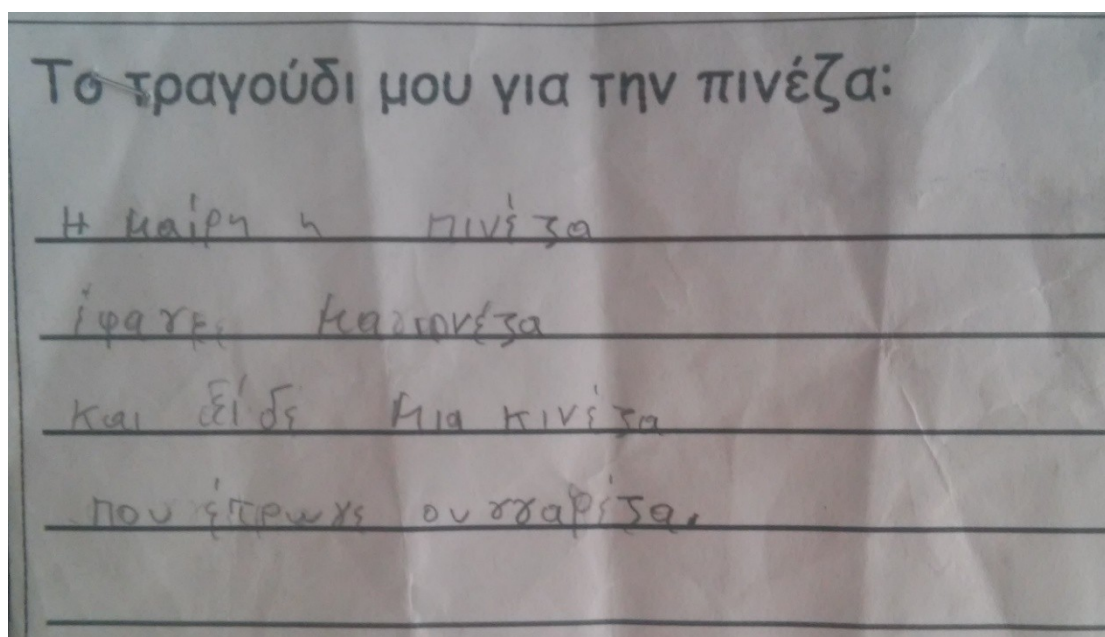 Το τραγούδι μου για την πινέζα:
Η μαίρη η πινέζα
έφαγε μαγιονέζα
και είδε μια κινέζα
που έτρωγε ουγγαρέζα.